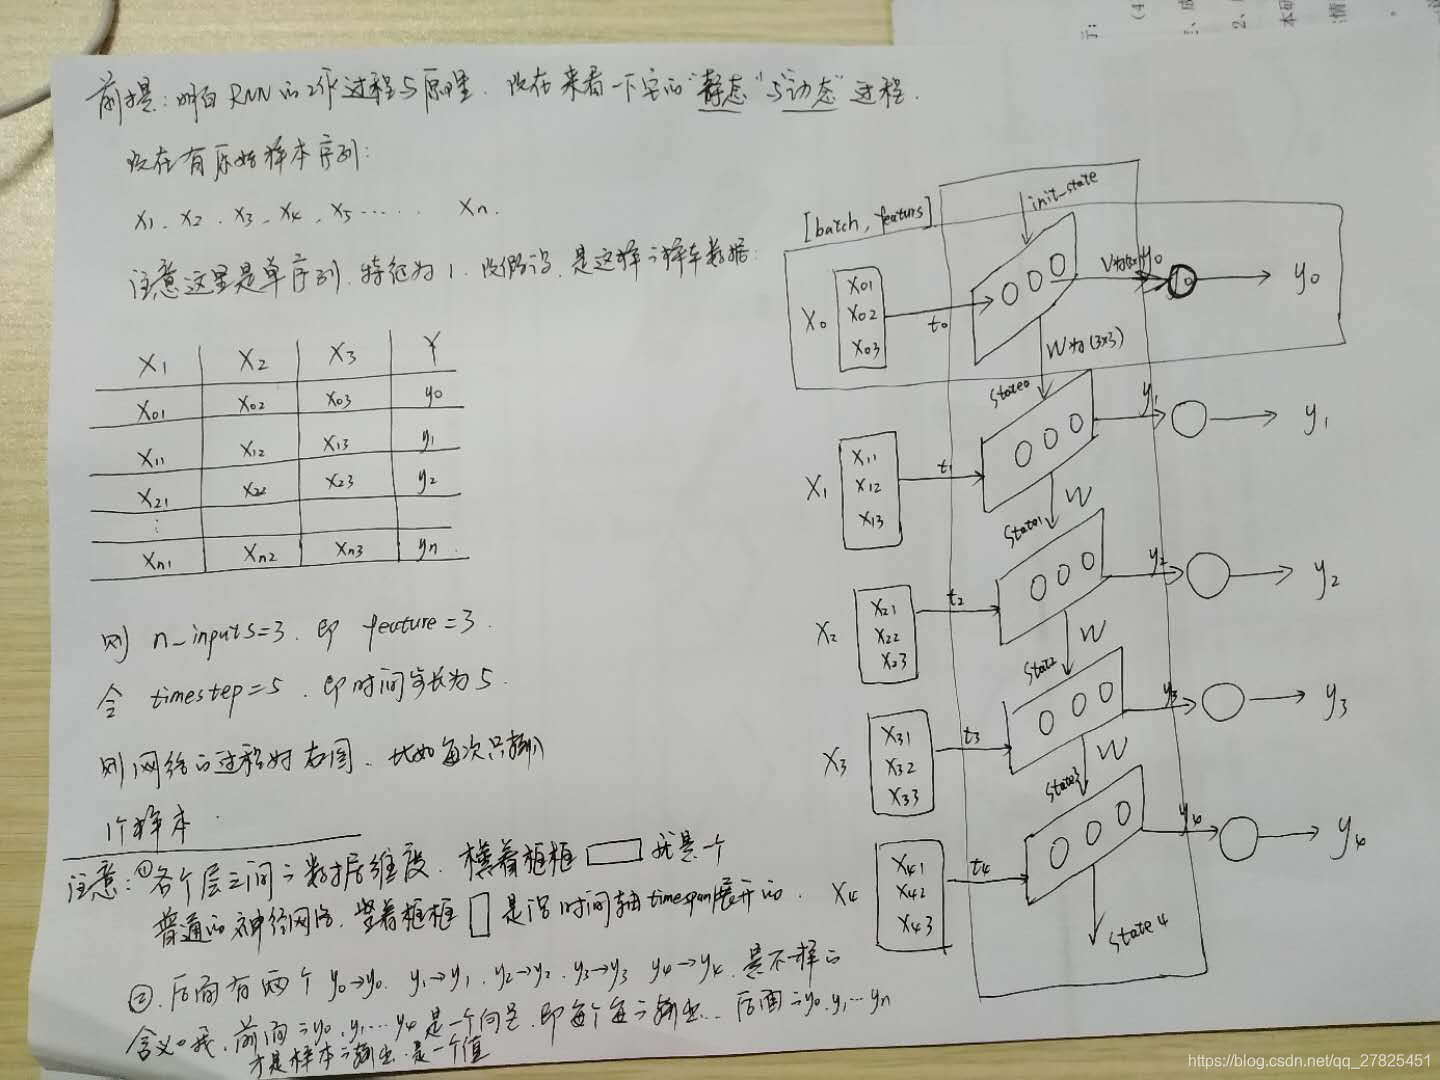 前提：明白RNN的工作过程与原理．现在来看一下它的"静态"与"动态"过程．
现在有原始样本序列：
X1、X2、X3、X4、X5…… Xn．
注意这里是单序列．特征为1．现假设．是这样的样本数据：
X1 X2 X3 Y
X01 X02 X03 y0
X11 X12 X13 y1
X21 X22 X23 y2
⋮
Xn1 Xn2 Xn3 yn
则 n_inputs=3．即 feature=3．
令 timestep=5．即时间步长为5．
则网络的过程如右图．比如每次只输入
1个样本．
注意：①各个层之间的数据维度．横着框框 就是一个
普通的神经网络．竖着框框 是沿时间轴timespan展开的．
②．后面有两个 y0→y0．y1→y1．y2→y2．y3→y3 y4→y4．是不一样的
含义．前面的y0．y1…y4是一个向量．即每个的输出．．后面的y0．y1…yn
才是样本的输出．是一个值
[batch, featurs]
init_state
X0
X01
X02
X03
t0
V为(3x1) y0
y0
y0
W为(3x3)
State0
X1
X11
X12
X13
t1
y1
y1
W
State1
X2
X21
X22
X23
t2
y2
y2
W
State2
X3
X31
X32
X33
t3
y3
y3
W
State3
X4
X41
X42
X43
t4
y4
y4
State4
https://blog.csdn.net/qq_27825451